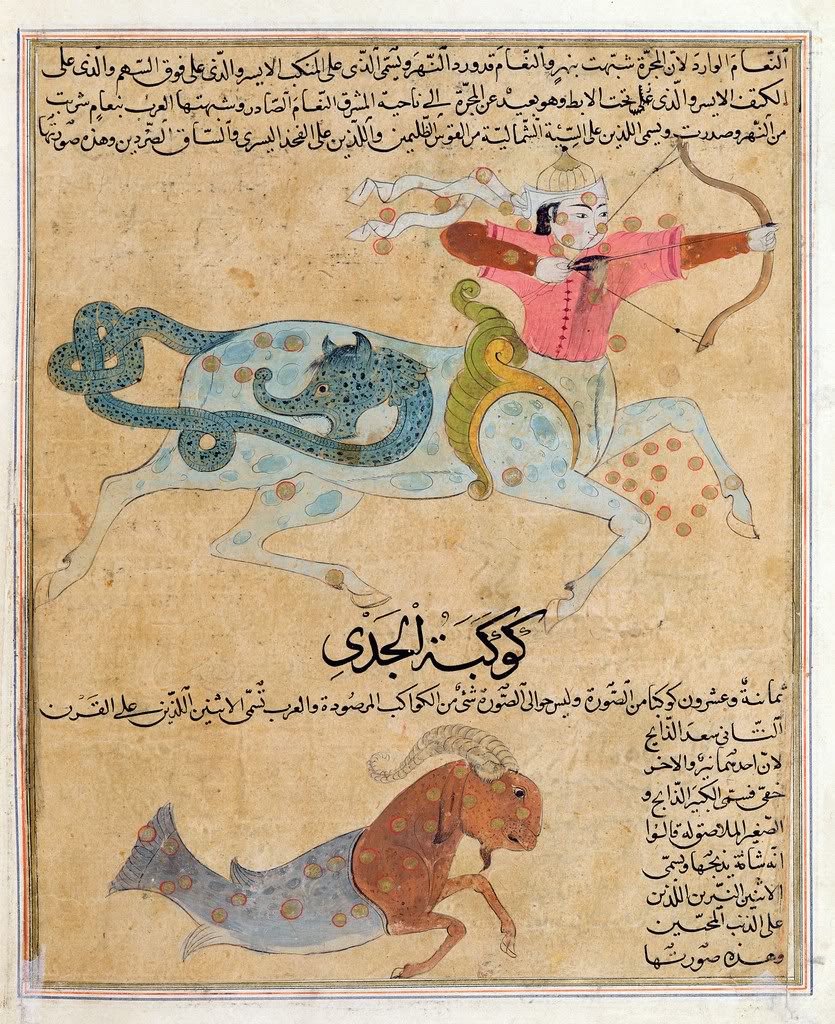 النعام الوارد لان المجرّة شبّهت بنهر والنعام قد ورد النهر ويسمّى الذى على المنكب الايسر والذى على فوق السهم والذى على
الكتف الايسر والذى على تحت الابط وهو بعيد عن المجرّة الى ناحية المشرق النعام الصادر وشبّهتها العرب بنعام شربت
من النهر وصدرت ويسمى اللذين على السِّيَة الشمالية من القوس الظليمين واللذين على الفخذ اليسرى والساق الصُّرَدين وهذه صورتها
كَوكَبَة الجَدْىِ
ثمانية وعشرون كوكبا من الصورة وليس حوالى الصورة شئ من الكواكب المرصودة والعرب تسمّى الاثنين اللذين على القرن
الثانى سعد الذابح
لانّ احدهما نيّر والاخر
خفى فسمى الكبير الذابح و
الصغير الملاصق له قالوا
انّه شاته يذبحها ويسمّى
الاثنين النيّرين اللذين
على الذنب المحبّين
وهذه صورتها